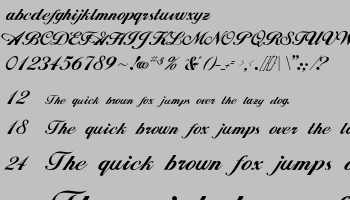 abcdefghijklmnopqrstuvwxyz
ABCDEFGHIJKLMNOPQRSTUVW
0123456789~!@#$% & ()-_+= >,<.///|\ \"":;/?
12 The quick brown fox jumps over the lazy dog.
18 The quick brown fox jumps over the l
24 The quick brown fox jumps o